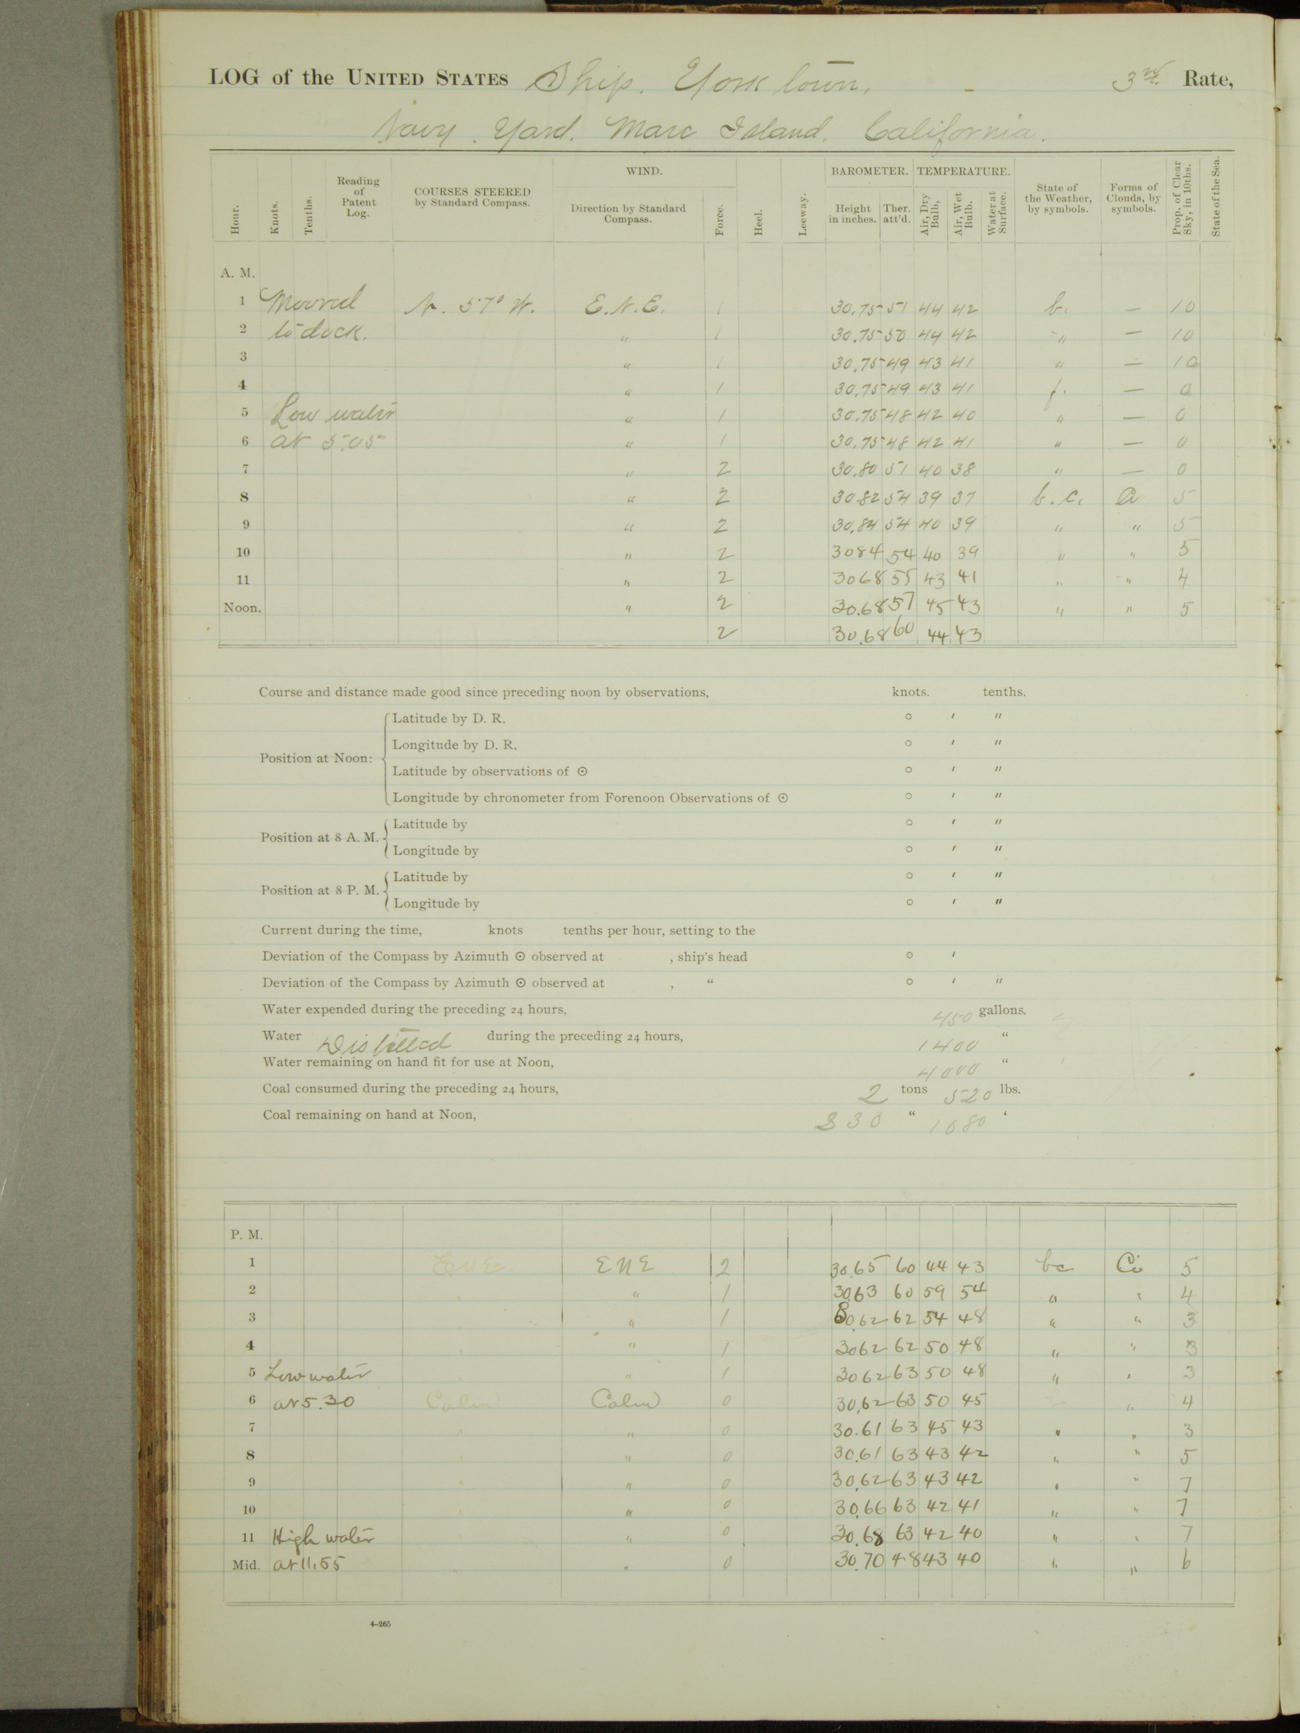 LOG of the UNITED STATES Ship. Yorktown, 3rd Rate,
Navy Yard. Mare Island. California.
Hour. Knots. Tenths. Reading of Patent Log. COURSES STEERED by Standard Compass. WIND. Direction by Standard Compass. Force. Heel. Leeway. BAROMETER. Height in inches. Ther. att'd. TEMPERATURE. Air, Dry Bulb, Air, Wet Bulb. Water at Surface. State of the Weather, by symbols. Forms of Clouds, by symbols. Prop. of Clear Sky, in 10ths. State of the Sea.
A. M.
1 Moored N. 57° W. E.N.E. 1 30.75 51 44 42 b. — 10
2 to dock. " 1 30.75 50 44 42 " — 10
3 " 1 30.75 49 43 41 " — 10
4 " 1 30.75 49 43 41 f. — 0
5 Low water " 1 30.75 48 42 40 " — 0
6 at 5.05 " 1 30.75 48 42 41 " — 0
7 " 2 30.80 51 40 38 " — 0
8 " 2 30.82 54 39 37 b.c. Ci 5
9 " 2 30.84 54 40 39 " " 5
10 " 2 3084 54 40 39 " " 5
11 " 2 3068 55 43 41 " " 4
Noon. " 2 30.68 57 45 43 " " 5
2 30.68 60 44 43
Course and distance made good since preceding noon by observations, knots. tenths.
Position at Noon:
Latitude by D. R. ° ′ ″
Longitude by D. R. ° ′ ″
Latitude by observations of ☉ ° ′ ″
Longitude by chronometer from Forenoon Observations of ☉ ° ′ ″
Position at 8 A. M.
Latitude by ° ′ ″
Longitude by ° ′ ″
Position at 8 P. M.
Latitude by ° ′ ″
Longitude by ° ′ ″
Current during the time, knots tenths per hour, setting to the
Deviation of the Compass by Azimuth ☉ observed at , ship's head ° ′
Deviation of the Compass by Azimuth ☉ observed at , " ° ′ ″
Water expended during the preceding 24 hours, 450 gallons.
Water Distilled during the preceding 24 hours, 1400 "
Water remaining on hand fit for use at Noon, 4000 "
Coal consumed during the preceding 24 hours, 2 tons 520 lbs.
Coal remaining on hand at Noon, 330 " 1080 "
P. M.
1 ENE ENE 2 30.65 60 44 43 bc Ci 5
2 " 1 30.63 60 59 54 " " 4
3 " 1 30.62 62 54 48 " " 3
4 " 1 3062 62 50 48 " " 3
5 Low water " 1 3062 63 50 48 " " 3
6 at 5.30 Calm Calm 0 30.62 63 50 45 " 4
7 " 0 30.61 63 45 43 " " 3
8 " 0 30.61 63 43 42 " " 5
9 " 0 30.62 63 43 42 " " 7
10 " 0 30.66 63 42 41 " " 7
11 High water " 0 30.68 63 42 40 " " 7
Mid. at 11.55 " 0 30.70 48 43 40 " " 6
4-265